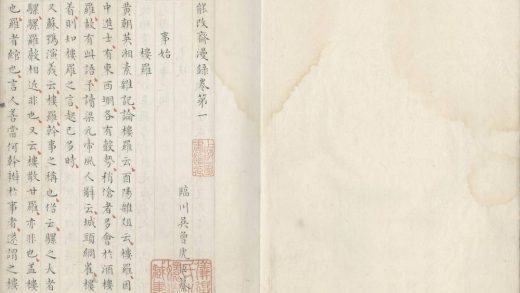 能改齋漫錄卷第一
臨川吳曾虎臣
事始
樓羅
黄朝英緗素雜記論樓羅云酉陽雜俎云樓羅因
中進士有東西棚各有聲勢稍傖者多會於酒樓
羅故有此語予讀梁元帝風人辭云城頭網雀樓
着則知樓羅之言起已多時
又蘇鶚演義云樓羅幹事之稱也俗云騾之大者
騾騾羅聲相近非也又云樓敢甘羅亦非也蓋樓
也羅者綰也言人善當何幹辦於事者遂謂之樓